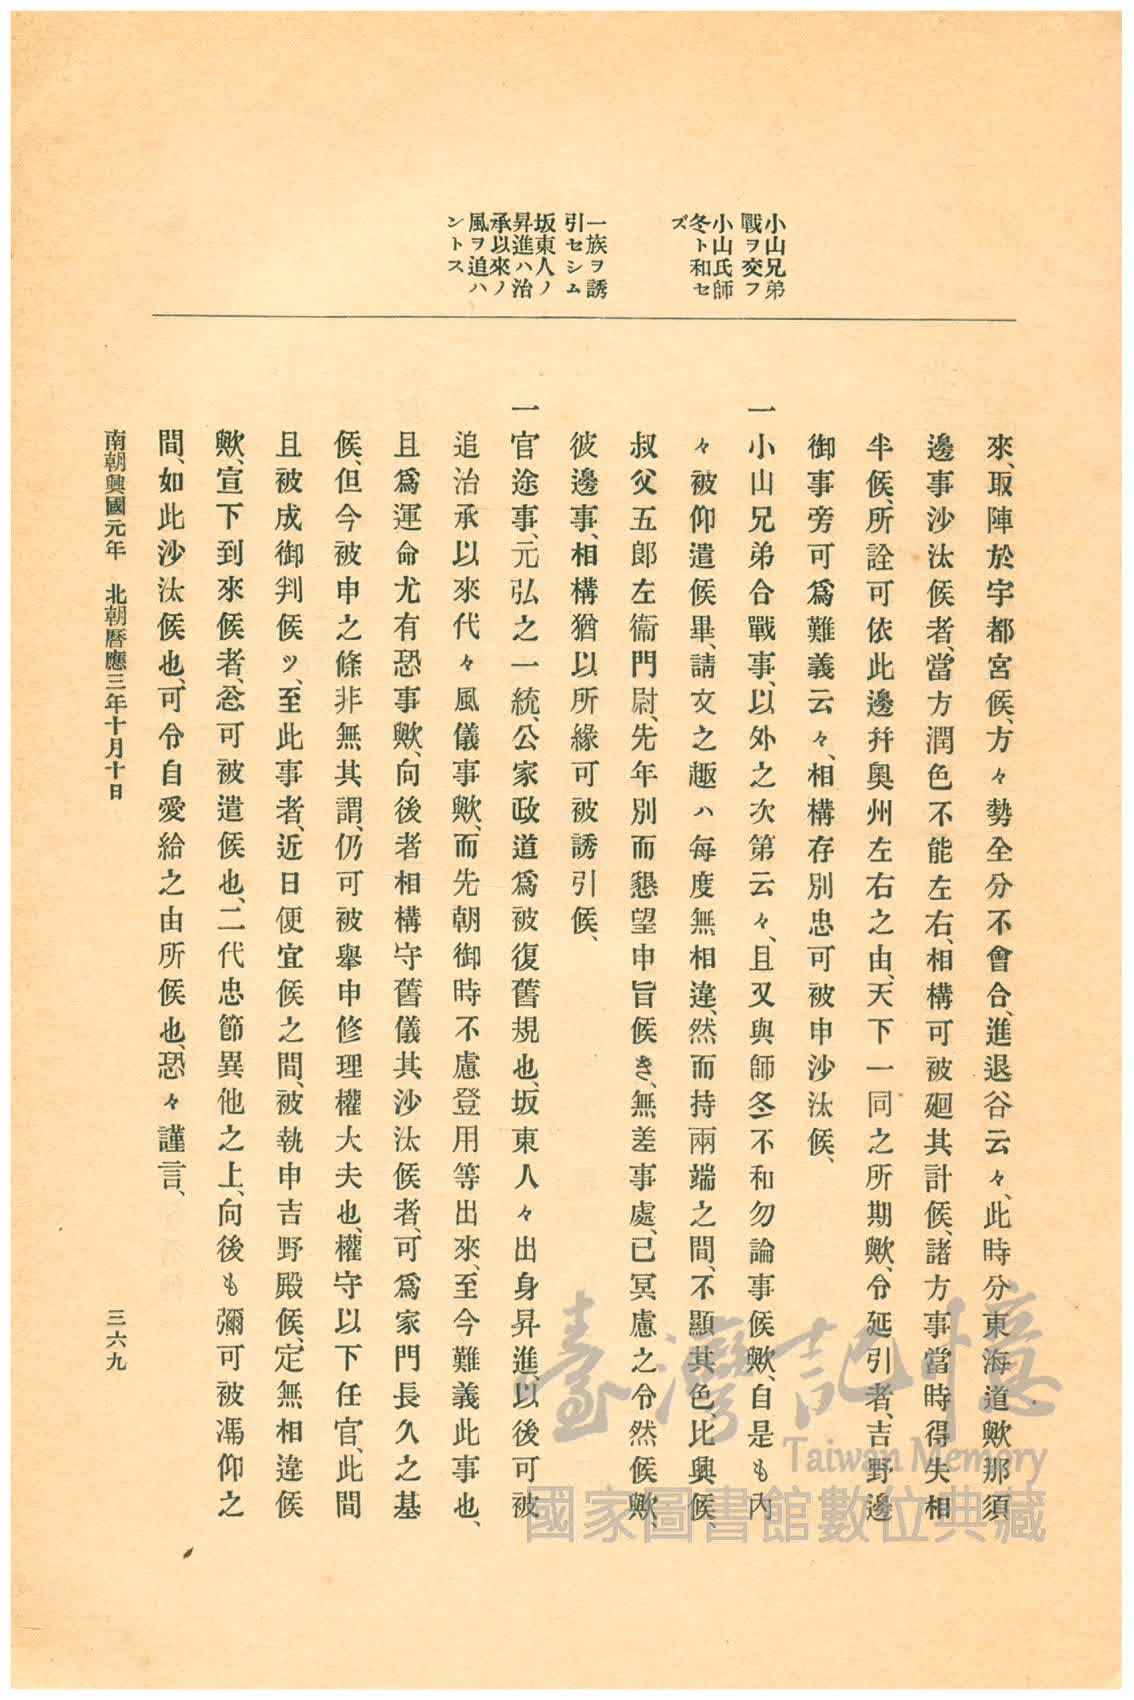 小山兄弟
戰ヲ交フ
小山氏師
冬ト和セ
ズ
一族ヲ誘
引セシム
坂東人ノ
昇進ハ治
承以來ノ
風ヲ追ハ
ントス
來、取陣於宇都宮候、方々勢全分不會合、進退谷云々、此時分東海道歟那須
邊事沙汰候者、當方潤色不能左右、相構可被廻其計候、諸方事當時得失相
半候、所詮可依此邊幷奧州左右之由、天下一同之所期歟、令延引者、吉野邊
御事旁可爲難義云々、相構存別忠可被申沙汰候、
一小山兄弟合戰事、以外之次第云々、且又與師冬不和勿論事候歟、自是も內
々被仰遣候畢、請文之趣ハ每度無相違、然而持兩端之間、不顯其色、比興候、
叔父五郎左衞門尉、先年別而懇望申旨候き、無差事處、已冥慮之令然候歟、
彼邊事、相構猶以所緣可被誘引候、
一官途事、元弘之一統、公家政道爲被復舊規也、坂東人々出身昇進、以後可被
追治承以來代々風儀事歟、而先朝御時不慮登用等出來、至今難義此事也、
且爲運命尤有恐事歟、向後者相構守舊儀其沙汰候者、可爲家門長久之基
候、但今被申之條非無其謂、仍可被擧申修理權大夫也、權守以下任官、此間
且被成御判候ツ、至此事者、近日便宜候之間、被執申吉野殿候、定無相違候
歟、宣下到來候者、忩可被遣候也、二代忠節異他之上、向後も彌可被馮仰之
間、如此沙汰候也、可令自愛給之由所候也、恐々謹言、
南朝興國元年　北朝曆應三年十月十日
三六九
臺灣記憶
Taiwan Memory
國家圖書館數位典藏